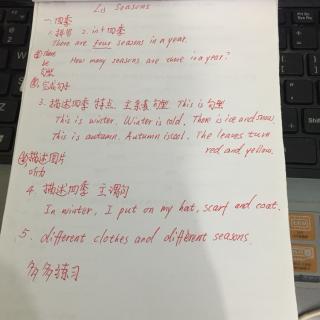 L3 Seasons
一. 四季
1. 拼写 2. int 四季
There are four seasons in a year.
② There be 句型
How many seasons are there in a year?
④ 完成句子
3. 描述四季 特点. 主系表句型 This is 句型
This is winter. Winter is cold. There is ice and snow.
This is autumn. Autumn is cool. The leaves turn
red and yellow.
④ 描述图片
听力
4. 描述四季 主谓
In winter, I put on my hat, scarf and coat.
5. different clothes and different seasons.
多多练习